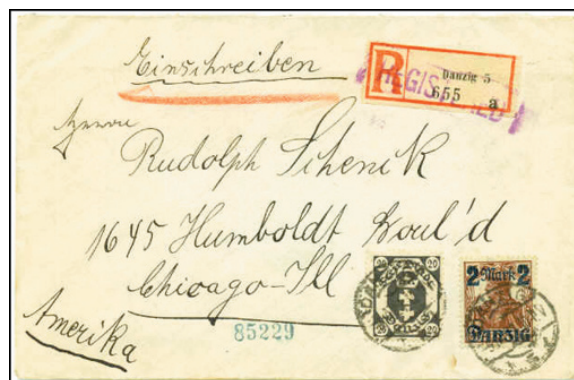 Einschreiben
R
Danzig 5
655 a
REGISTERED
Herrn
Rudolph Schenck
1645 Humboldt Boul'd
Chicago-Ill
Amerika
85229
20 20
2 Mark 2
DANZIG